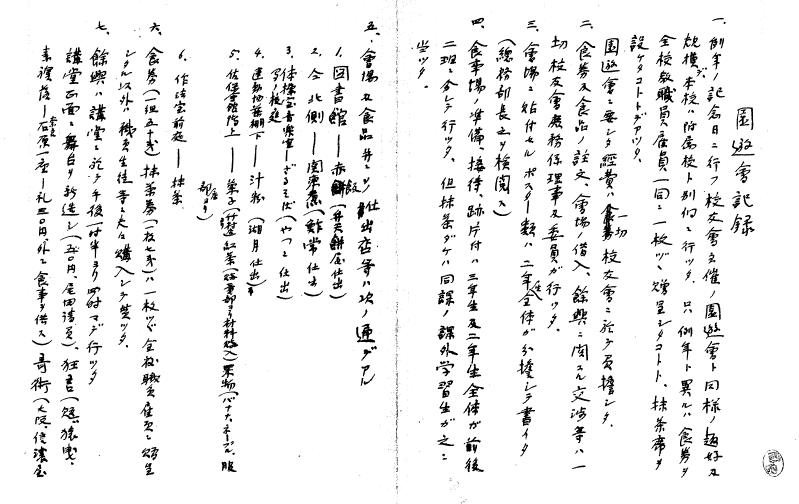 園遊會記録
一、例年ノ記念日ニ行フ校友會主催ノ園遊會ト同様ノ趣好及
規模デ本校ハ附属校ト別個ニ行ッタ。只例年ト異ルハ食券ヲ
全校教職員雇員一同ニ一枚ヅヽ贈呈シタコトト、抹茶席ヲ
設ケタコトトデアッタ。
園遊會ニ要シタ經費ハ一切校友會ニ於テ負擔シタ。
二、食券及食品ノ註文、會場ノ借入、餘興ニ関スル交渉等ハ一
切校友會庶務係理事及委員ガ行ッタ。
三、會場ニ貼付セルポスター類ハ二年生全体ガ分擔シテ書イタ
(総務部長之ヲ検閲ス)
四、食事場ノ準備、接待、跡片付ハ三年生及二年生全体ガ前後
二班ニ分レテ行ッタ。但抹茶ダケハ同課ノ課外学習生ガ之ニ
当ッタ。
五、會場及食品並ビニ仕出店等ハ次ノ通デアル
1. 図書館 — 赤飯(弁天餅屋仕出)
2. 仝北側 — 関東煮(鮓常仕出)
3. 体操室音楽室ノ前校庭 — ざるそば(やつこ仕出)
4. 運動場藤棚下 — 汁粉(湖月仕出)
5. 佐保會館階上 — 菓子 紅茶(材料購入)果物(バナナ、ネーブル、服部店ヨリ)
6. 作法室前庭 — 抹茶
六、食券(一組五十銭)抹茶券(一枚七銭)ハ一枚ヅヽ全校職員雇員ニ贈呈
シタル以外ハ職員生徒等ニ夫々購入シテ貰ッタ。
七、餘興ハ講堂ニ於テ午後一時半ヨリ四時マデ行ッタ
講堂正面ニ舞台ヲ新造シ(五〇円、尾田請負)、狂言(靱猿曳、
素袍落 — 石原一座 — 礼三〇円外ニ食事ヲ供ス)奇術(大阪、